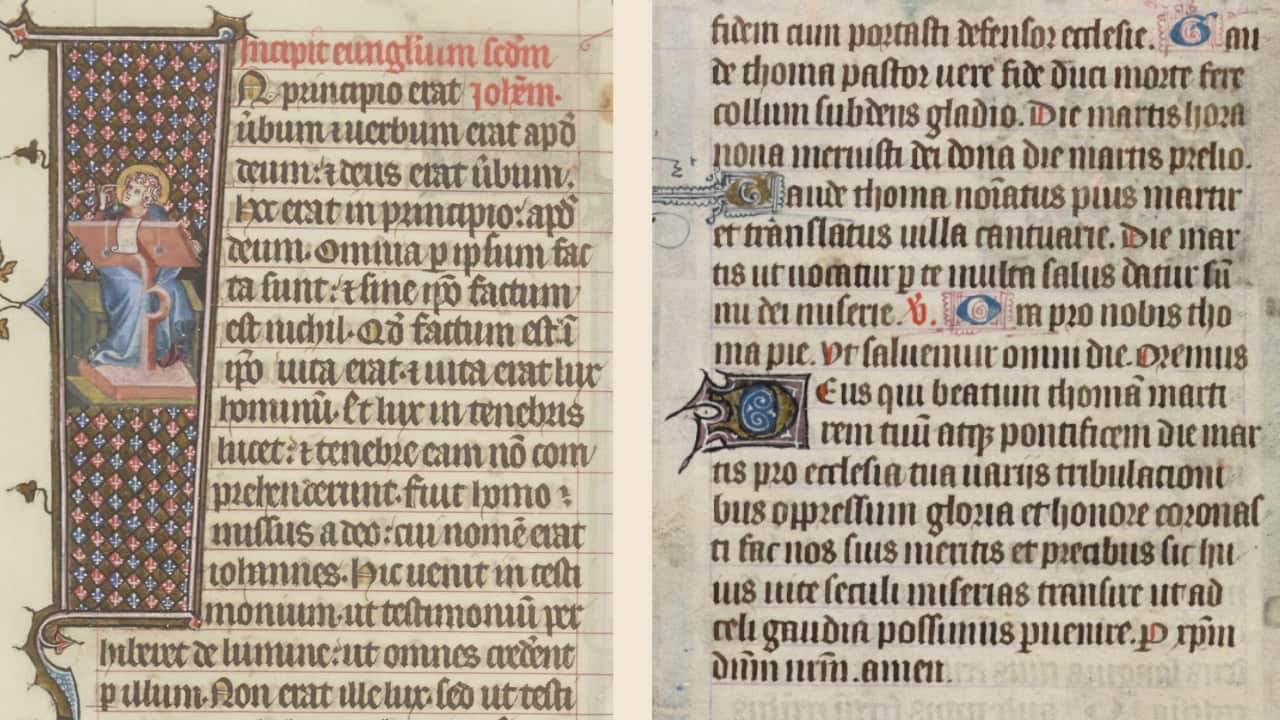 Incipit euuglium scdm
N principio erat Iohem.
ubum ⁊ uerbum erat apd
deum: ⁊ deus erat ubum.
Hoc erat in principio: apd
deum. Omnia p ipsum fac
ta sunt: ⁊ sine ipo factum
est nichil. Qd factum est ī
ipo uita erat. ⁊ uita erat lux
hominū. Et lux in tenebris
lucet: ⁊ tenebre eam nō com
prehenderunt. fuit homo
missus a deo: cui nomē erat
iohannes. Hic uenit in testi
monium. ut testimoniū per
hiberet de lumine: ut omnes credēnt
p illum. Non erat ille lux. sed ut testi
fidem cum portasti defensor ecclesie. Gau
de thoma pastor uere fide duci morte fere
collum subdens gladio. Die martis hora
nona meruisti dei dona die martis prelio.
Gaude thoma noīatus pius martir
et translatus uilla cantuarie. Die mar
tis ut uocatur p te multa salus datur sū
mi dei miserie. V. Ora pro nobis tho
ma pie. Ut saluemur omni die. Oremus
Deus qui beatum thomā marti
rem tuū atqꝫ pontificem die mar
tis pro ecclesia tua uariis tribulacioni
bus oppressum gloria et honore coronas
ti fac nos suis meritis et precibus sic hu
ius uite seculi miserias transire ut ad
celi gaudia possimus puenire. P xpm
dnm nrm. amen.